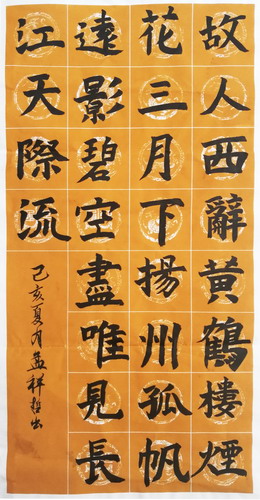 故人西辭黄鶴樓煙
花三月下揚州孤帆
遠影碧空盡唯見長
江天際流
己亥夏月孟祥